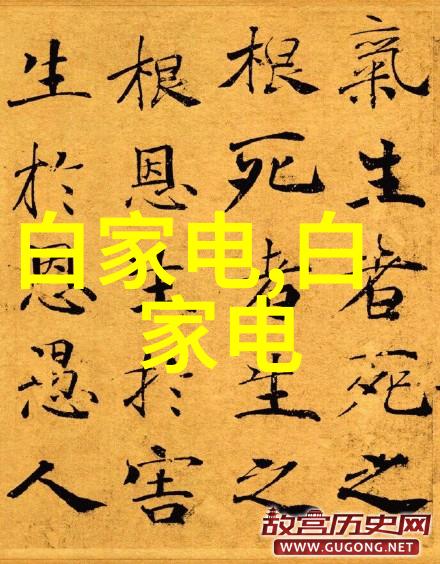 氣生者死之
根死者生之
根恩生於害
生於恩愚人
白家电,白
家电
故宫历史网
WWW.GUGONG.NET